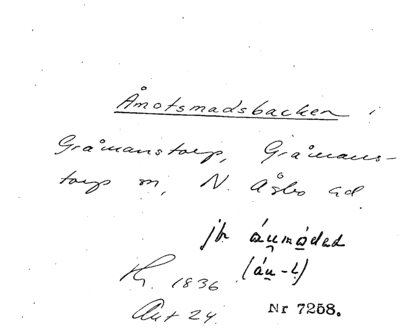 Åmotsmadsbacken i
Gråmanstorp, Gråmans-
torp sn, N. Åsbo hd.
jfr áu̯mǫdad
(áu-!)
Th. 1836
Akt 24
Nr 7258.